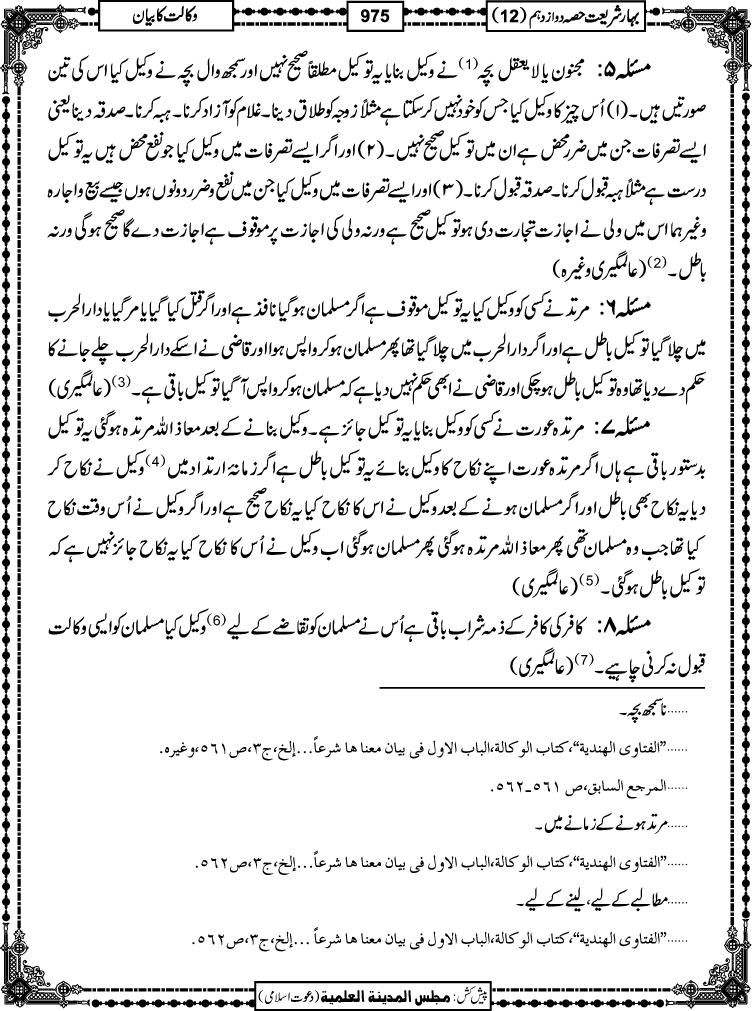 بہارشریعت حصہ دوازدہم (12)
975
وکالت کا بیان
مسئلہ ۵: مجنون یا لا یعقل بچہ (1) نے وکیل بنایا یہ توکیل مطلقاً صحیح نہیں اور سمجھ وال بچہ نے وکیل کیا اس کی تین
صورتیں ہیں۔ (۱) اُس چیز کا وکیل کیا جس کو خود نہیں کرسکتا ہے مثلاً زوجہ کو طلاق دینا۔ غلام کو آزاد کرنا۔ ہبہ کرنا۔ صدقہ دینا یعنی
ایسے تصرفات جن میں ضرر محض ہے ان میں توکیل صحیح نہیں۔ (۲) اور اگر ایسے تصرفات میں وکیل کیا جو نفع محض ہیں یہ توکیل
درست ہے مثلاً ہبہ قبول کرنا۔ صدقہ قبول کرنا۔ (۳) اور ایسے تصرفات میں وکیل کیا جن میں نفع و ضرر دونوں ہوں جیسے بیع و اجارہ
وغیرہما اس میں ولی نے اجازت تجارت دی ہو تو کیل صحیح ہے ورنہ ولی کی اجازت پر موقوف ہے اجازت دے گا صحیح ہوگی ورنہ
باطل۔ (2) (عالمگیری وغیرہ)
مسئلہ ۶: مرتد نے کسی کو وکیل کیا یہ توکیل موقوف ہے اگر مسلمان ہوگیا نافذ ہے اور اگر قتل کیا گیا یا مرگیا یا دارالحرب
میں چلا گیا توکیل باطل ہے اور اگر دارالحرب میں چلا گیا تھا پھر مسلمان ہو کر واپس ہوا اور قاضی نے اسکے دارالحرب چلے جانے کا
حکم دے دیا تھا وہ توکیل باطل ہوچکی اور قاضی نے ابھی حکم نہیں دیا ہے کہ مسلمان ہو کر واپس آگیا توکیل باقی ہے۔ (3) (عالمگیری)
مسئلہ ۷: مرتدہ عورت نے کسی کو وکیل بنایا یہ توکیل جائز ہے۔ وکیل بنانے کے بعد معاذ اللہ مرتدہ ہوگئی یہ توکیل
بدستور باقی ہے ہاں اگر مرتدہ عورت اپنے نکاح کا وکیل بنائے یہ توکیل باطل ہے اگر زمانۂ ارتداد میں (4) وکیل نے نکاح کر
دیا یہ نکاح بھی باطل اور اگر مسلمان ہونے کے بعد وکیل نے اس کا نکاح کیا یہ نکاح صحیح ہے اور اگر وکیل نے اُس وقت نکاح
کیا تھا جب وہ مسلمان تھی پھر معاذ اللہ مرتدہ ہوگئی پھر مسلمان ہوگئی اب وکیل نے اُس کا نکاح کیا یہ نکاح جائز نہیں ہے کہ
توکیل باطل ہوگئی۔ (5) (عالمگیری)
مسئلہ ۸: کافر کی کافر کے ذمہ شراب باقی ہے اُس نے مسلمان کو تقاضے کے لیے (6) وکیل کیا مسلمان کو ایسی وکالت
قبول نہ کرنی چاہیے۔ (7) (عالمگیری)
......ناسمجھ بچہ۔
......”الفتاوی الھندیة“،کتاب الوکالة،الباب الاول فی بیان معنا ھا شرعاً...إلخ،ج٣،ص٥٦١،وغیرہ.
......المرجع السابق،ص ٥٦١-٥٦٢.
......مرتد ہونے کے زمانے میں۔
......”الفتاوی الھندیة“،کتاب الوکالة،الباب الاول فی بیان معنا ھا شرعاً...إلخ،ج٣،ص٥٦٢.
......مطالبے کے لیے، لینے کے لیے۔
......”الفتاوی الھندیة“،کتاب الوکالة،الباب الاول فی بیان معنا ھا شرعاً ...إلخ،ج٣،ص٥٦٢.
پیش کش: مجلس المدینة العلمیة (دعوت اسلامی)